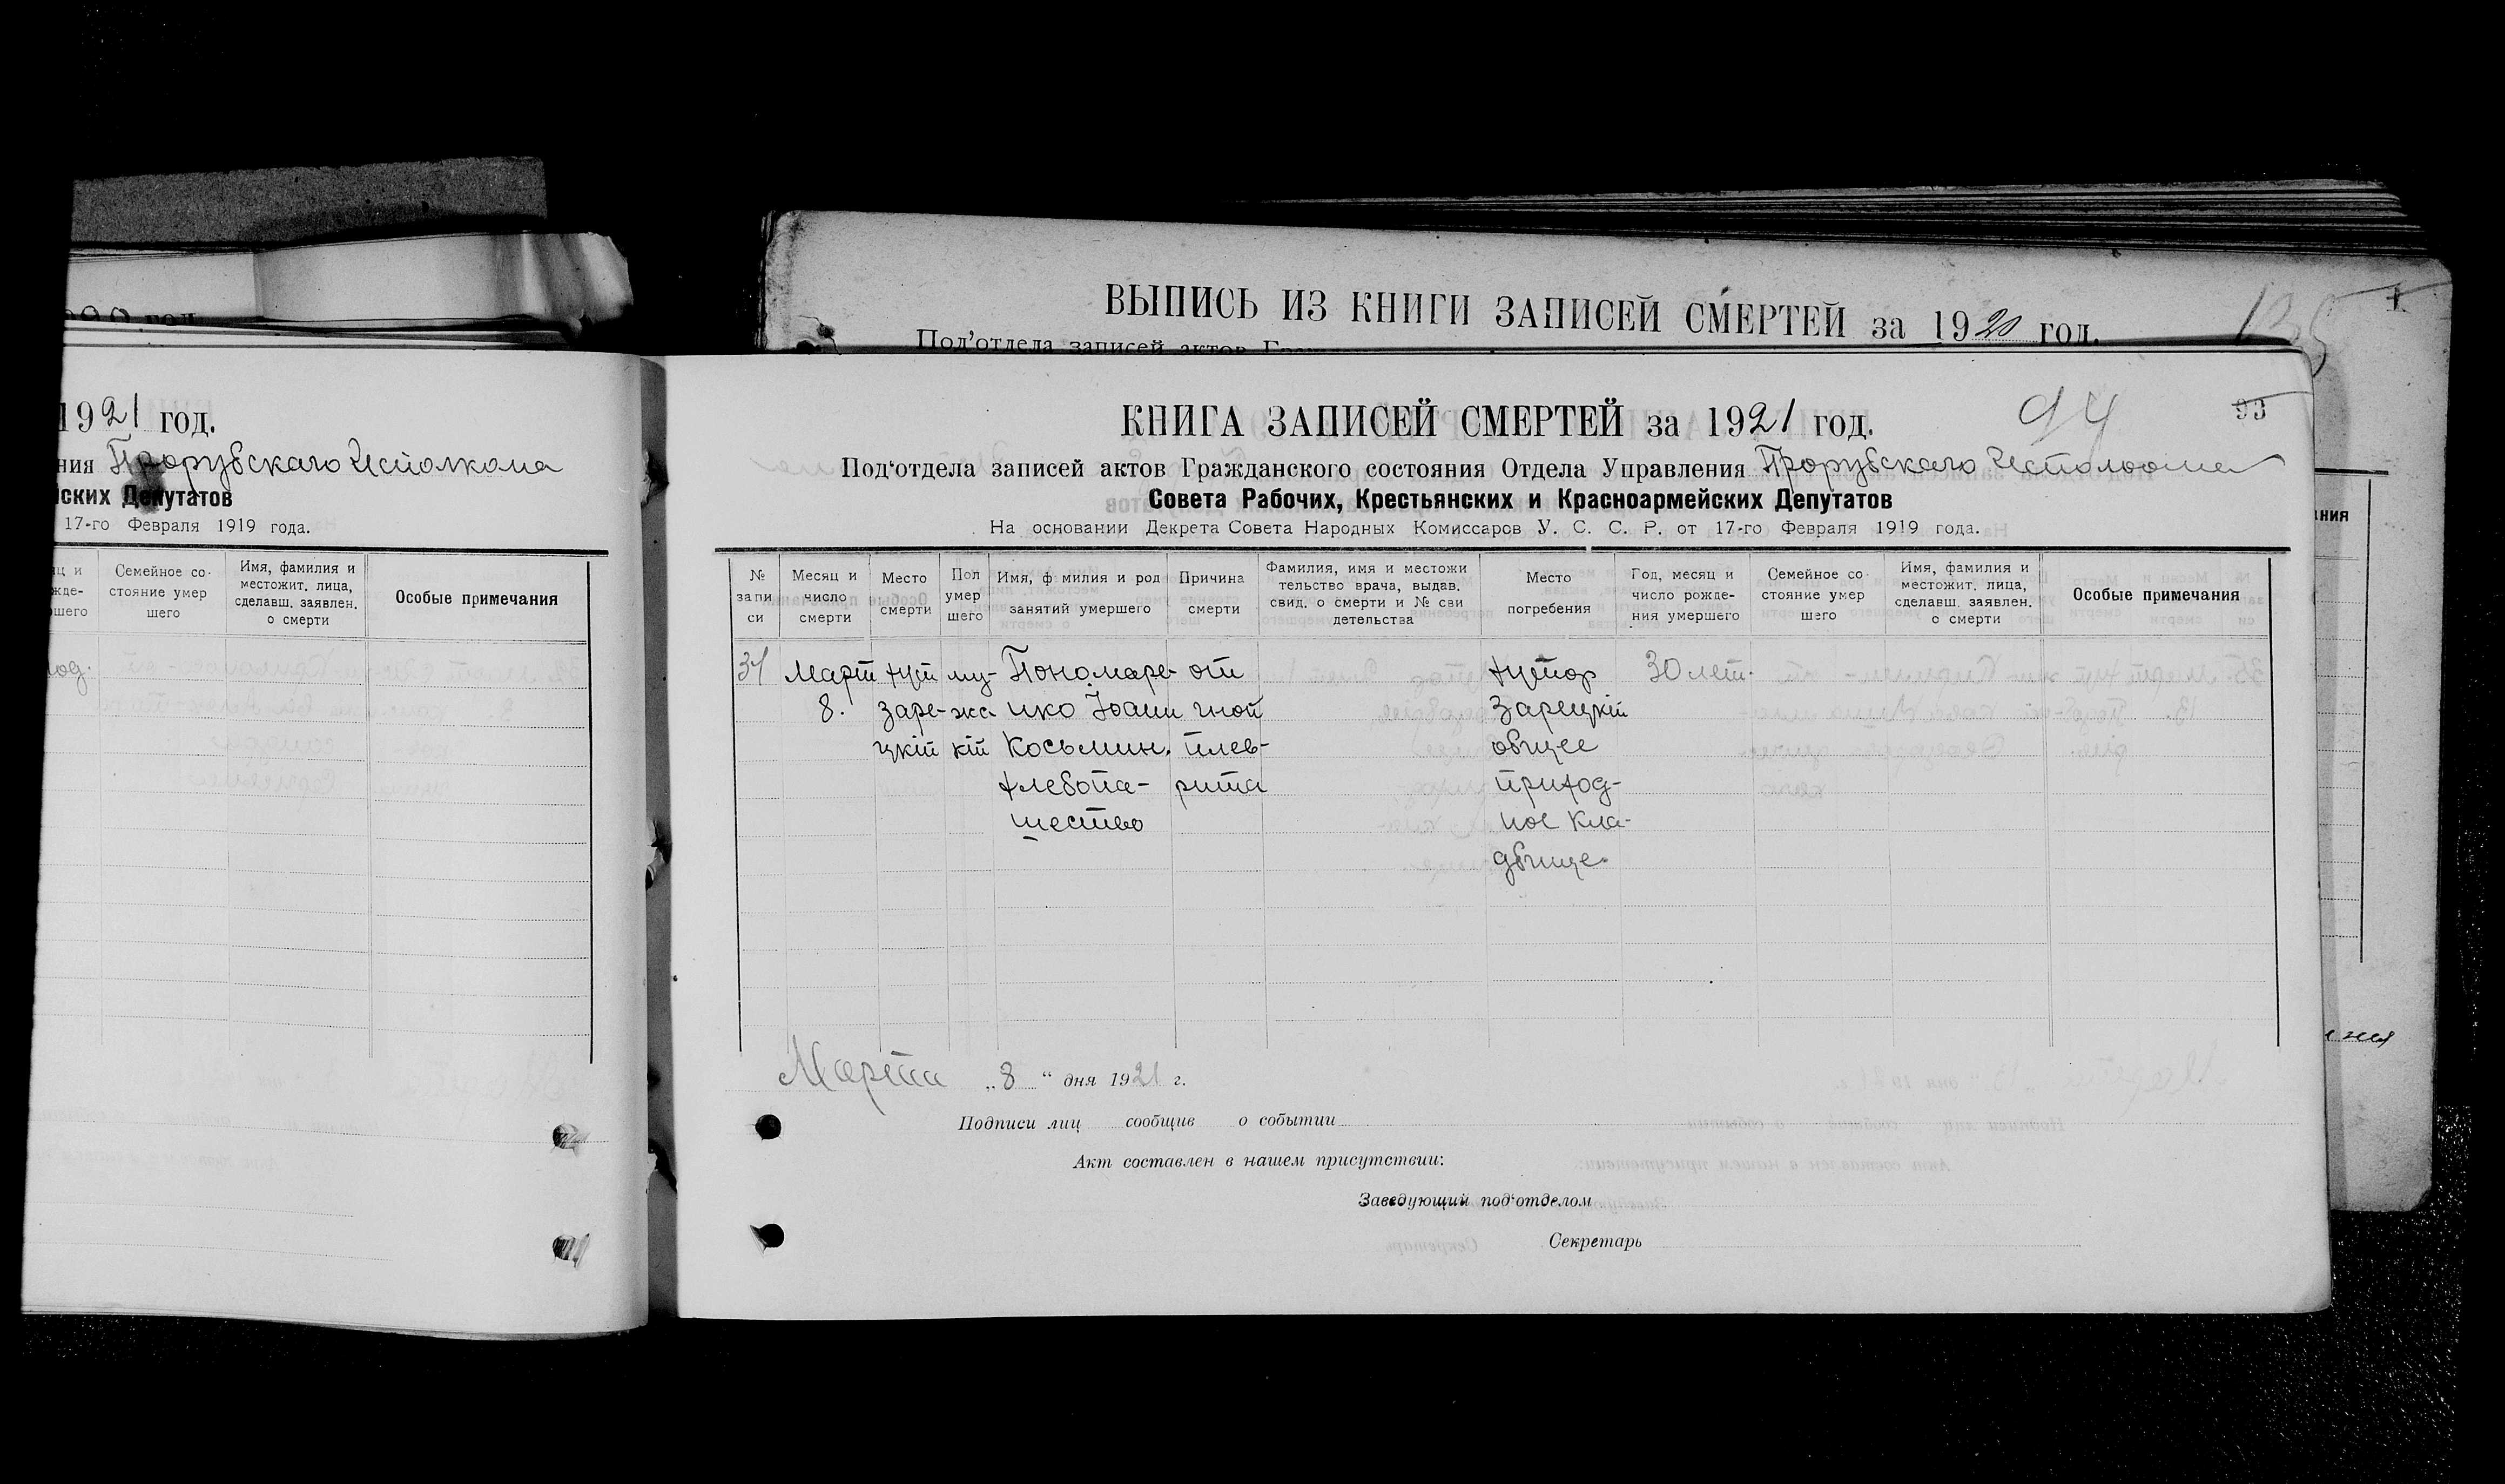 ВЫПИСЬ ИЗ КНИГИ ЗАПИСЕЙ СМЕРТЕЙ за 1920 год.
135
Под'отдела записей актов
1921 год.
ния Прорубскаго Исполкома
йских Депутатов
17-го Февраля 1919 года.
Семейное со-
стояние умер
шего
Имя, фамилия и
местожит. лица,
сделавш. заявлен.
о смерти
Особые примечания
КНИГА ЗАПИСЕЙ СМЕРТЕЙ за 1921 год.
94
93
Под'отдела записей актов Гражданского состояния Отдела Управления Прорубскаго Исполкома
Совета Рабочих, Крестьянских и Красноармейских Депутатов
На основании Декрета Совета Народных Комиссаров У. С. С. Р. от 17-го Февраля 1919 года.
№
запи
си
Месяц и
число
смерти
Место
смерти
Пол
умер
шего
Имя, ф милия и род
занятий умершего
Причина
смерти
Фамилия, имя и местожи
тельство врача, выдав.
свид. о смерти и № сви
детельства
Место
погребения
Год, месяц и
число рожде-
ния умершего
Семейное со
стояние умер
шего
Имя, фамилия и
местожит. лица,
сделавш. заявлен.
о смерти
Особые примечания
34
Март
8.
хут
Заре-
цкій
му-
жс
кій
Пономаре-
нко Іоанн
Косьмин.
хлебопа-
шество
от
гной
плев-
рита
хутор
Зарецкій
общее
приход-
ное кла-
дбище.
30 лет.
Марта „8“ дня 1921 г.
Подписи лиц сообщив о событии
Акт составлен в нашем присутствии:
Заведующий под'отделом
Секретарь